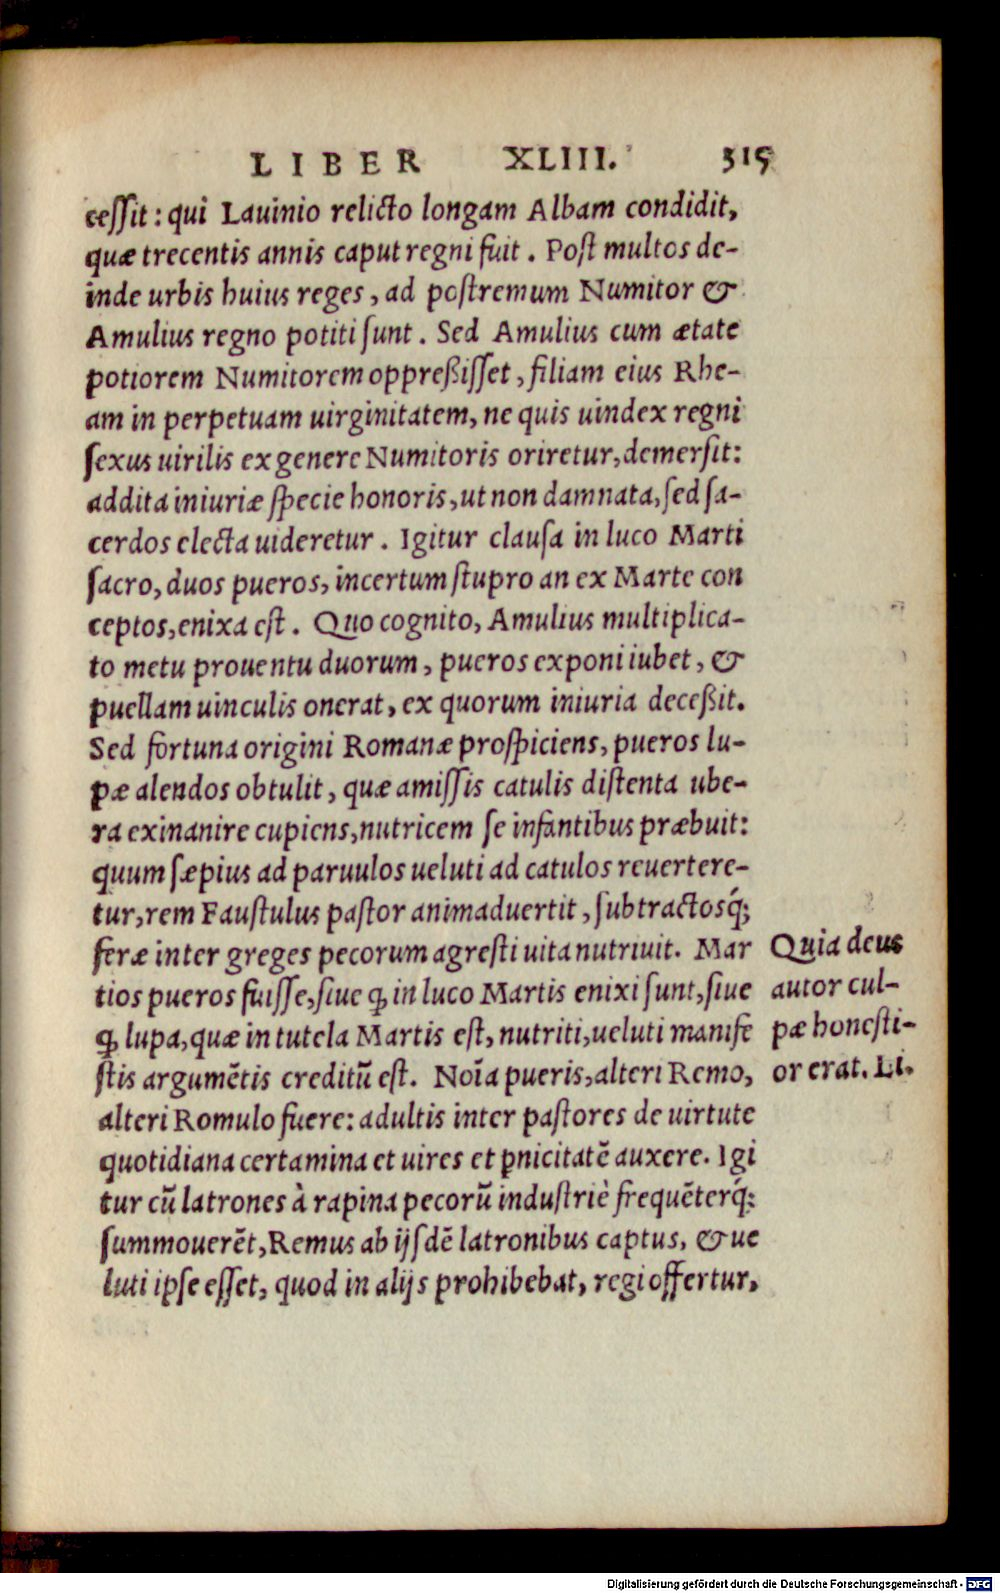 LIBER XLIII. 315
cessit: qui Lauinio relicto longam Albam condidit,
quæ trecentis annis caput regni fuit. Post multos de-
inde urbis huius reges, ad postremum Numitor &
Amulius regno potiti sunt. Sed Amulius cum ætate
potiorem Numitorem oppreßisset, filiam eius Rhe-
am in perpetuam uirginitatem, ne quis uindex regni
sexus uirilis ex genere Numitoris oriretur, demersit:
addita iniuriæ specie honoris, ut non damnata, sed sa-
cerdos electa uideretur. Igitur clausa in luco Marti
sacro, duos pueros, incertum stupro an ex Marte con
ceptos, enixa est. Quo cognito, Amulius multiplica-
to metu prouentu duorum, pueros exponi iubet, &
puellam uinculis onerat, ex quorum iniuria deceßit.
Sed fortuna origini Romanæ prospiciens, pueros lu-
pæ alendos obtulit, quæ amissis catulis distenta ube-
ra exinanire cupiens, nutricem se infantibus præbuit:
quum sæpius ad paruulos ueluti ad catulos reuertere-
tur, rem Faustulus pastor animaduertit, subtractosq́;
feræ inter greges pecorum agresti uita nutriuit. Mar
tios pueros fuisse, siue ꝙ in luco Martis enixi sunt, siue
ꝙ lupa, quæ in tutela Martis est, nutriti, ueluti manife
stis argumētis creditū est. Noīa pueris, alteri Remo,
alteri Romulo fuere: adultis inter pastores de uirtute
quotidiana certamina et uires et ꝑnicitatē auxere. Igi
tur cū latrones à rapina pecorū industriè frequēterq́;
summouerēt, Remus ab ijsdē latronibus captus, & ue
luti ipse esset, quod in alijs prohibebat, regi offertur,
Quia deus
autor cul-
pæ honesti-
or erat. Li.
Digitalisierung gefördert durch die Deutsche Forschungsgemeinschaft - DFG